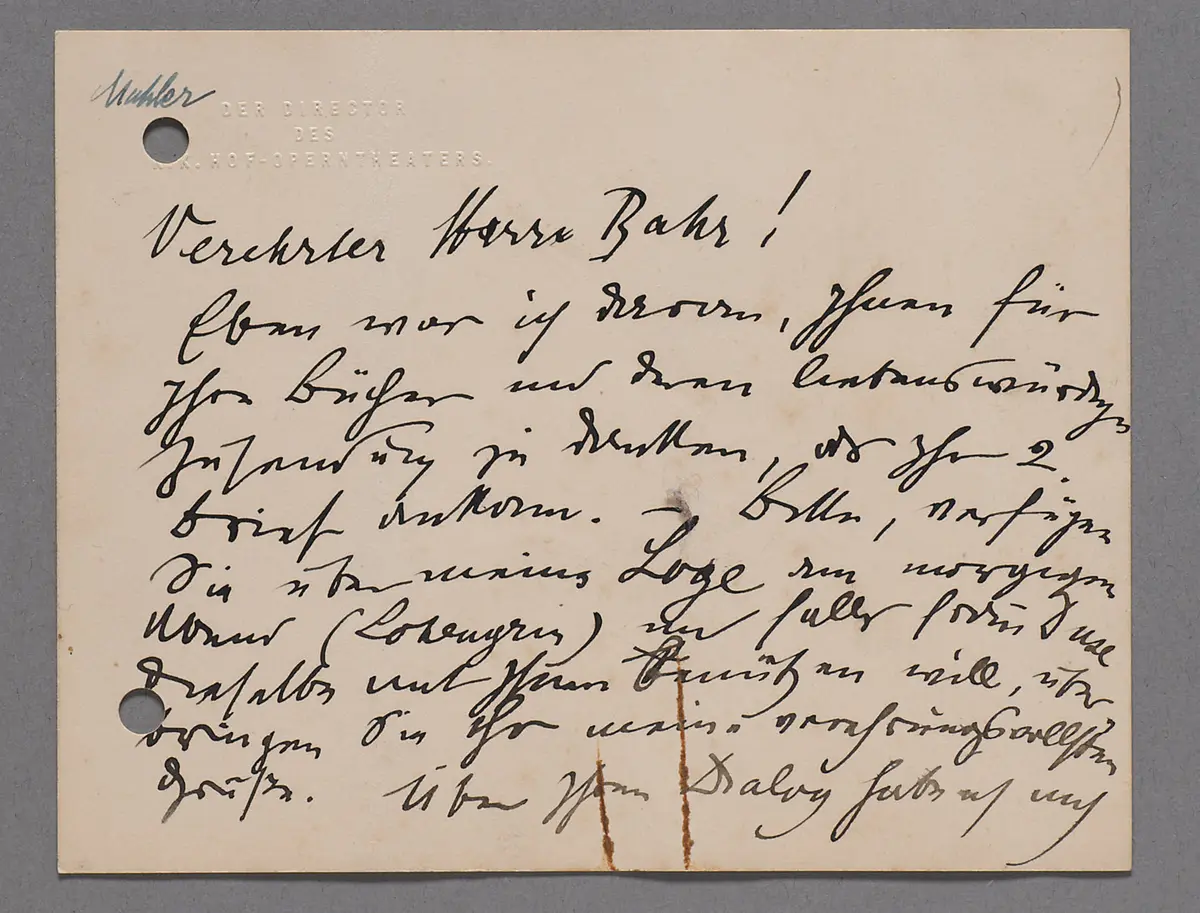 Mahler
DER DIRECTOR
DES
K. K. HOF-OPERNTHEATERS.
Verehrter Herr Bahr!
Eben war ich daran, Ihnen für
Ihre Bücher und deren liebenswürdige
Zusendung zu danken, als Ihr 2.
Brief ankam. – Bitte, verfügen
Sie über meine Loge am morgigen
Abend (Lohengrin) und falls
dieselbe mit Ihnen benützen will, über
bringen Sie ihr meine verehrungsvollsten
Grüße. Über Ihren Dialog habe ich mich